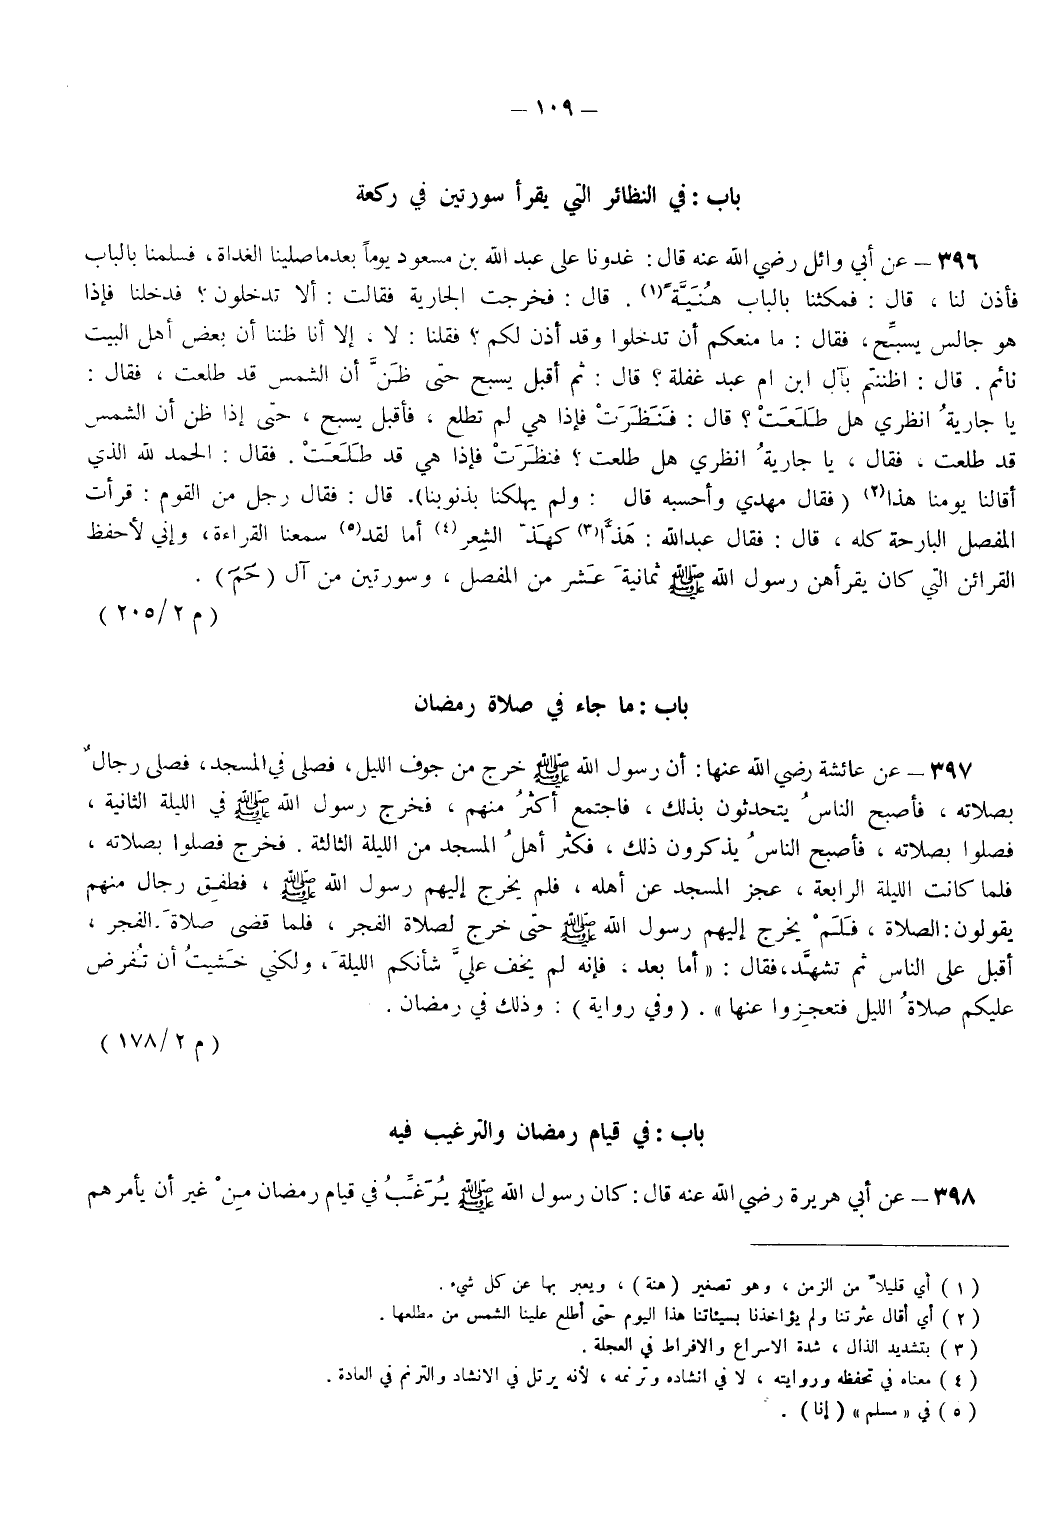 – ١٠٩ –
باب : في النظائر التي يقرأ سورتين في ركعة
٣٩٦ – عن أبي وائل رضي الله عنه قال : غدونا على عبد الله بن مسعود يوماً بعدما صلينا الغداة ، فسلمنا بالباب
فأذن لنا ، قال : فمكثنا بالباب هُنَيَّة ً(١) . قال : فخرجت الجارية فقالت : ألا تدخلون ؟ فدخلنا فإذا
هو جالس يسبِّح ، فقال : ما منعكم أن تدخلوا وقد أذن لكم ؟ فقلنا : لا ، إلا أنا ظننا أن بعض أهل البيت
نائم . قال : اظننتم بآل ابن ام عبد غفلة ؟ قال : ثم أقبل يسبح حتى ظَنَّ أن الشمس قد طلعت ، فقال :
يا جارية ُ انظري هل طَلَعَتْ ؟ قال : فَنَظَرَتْ فإذا هي لم تطلع ، فأقبل يسبح ، حتى إذا ظن أن الشمس
قد طلعت ، فقال ، يا جارية ُ انظري هل طلعت ؟ فنظَرَتْ فإذا هي قد طَلَعَتْ . فقال : الحمد لله الذي
أقالنا يومنا هذا(٢) ( فقال مهدي وأحسبه قال : ولم يهلكنا بذنوبنا). قال : فقال رجل من القوم : قرأت
المفصل البارحة كله ، قال : فقال عبدالله : هَذّاً(٣) كهَذّ الشِعر(٤) أما لقد(٥) سمعنا القراءة ، وإني لأحفظ
القرائن التي كان يقرأهن رسول الله ﷺ ثمانية َ عَشر من المفصل ، وسورتين من آل ( حَمَ ) .
( م ٢/٢٠٥ )
باب : ما جاء في صلاة رمضان
٣٩٧ – عن عائشة رضي الله عنها : أن رسول الله ﷺ خرج من جوف الليل ، فصلى في المسجد ، فصلى رجال ٌ
بصلاته ، فأصبح الناس ُ يتحدثون بذلك ، فاجتمع أكثرُ منهم ، فخرج رسول الله ﷺ في الليلة الثانية ،
فصلوا بصلاته ، فأصبح الناس ُ يذكرون ذلك ، فكثر أهل ُ المسجد من الليلة الثالثة . فخرج فصلوا بصلاته ،
فلما كانت الليلة الرابعة ، عجز المسجد عن أهله ، فلم يخرج إليهم رسول الله ﷺ ، فطفِق رجال منهم
يقولون : الصلاة ، فلَمْ يخرج إليهم رسول الله ﷺ حتى خرج لصلاة الفجر ، فلما قضى صلاة َ الفجر ،
أقبل على الناس ثم تشهَّد ، فقال : « أما بعد ، فإنه لم يخف عليَّ شأنكم الليلة َ ، ولكني خَشيتُ أن تُفرض
عليكم صلاة ُ الليل فتعجِزوا عنها » . ( وفي رواية ) : وذلك في رمضان .
( م ٢/١٧٨ )
باب : في قيام رمضان والترغيب فيه
٣٩٨ – عن أبي هريرة رضي الله عنه قال : كان رسول الله ﷺ يُرَغِّبُ في قيام رمضان مِنْ غير أن يأمرهم
( ١ ) أي قليلا ً من الزمن ، وهو تصغير ( هنة ) ، ويعبر بها عن كل شيء .
( ٢ ) أي أقال عثرتنا ولم يؤاخذنا بسيئاتنا هذا اليوم حتى أطلع علينا الشمس من مطلعها .
( ٣ ) بتشديد الذال ، شدة الاسراع والافراط في العجلة .
( ٤ ) معناه في تحفظه وروايته ، لا في انشاده وترنمه ، لأنه يرتل في الانشاد والترنم في العادة .
( ٥ ) في « مسلم » ( إنا ) .